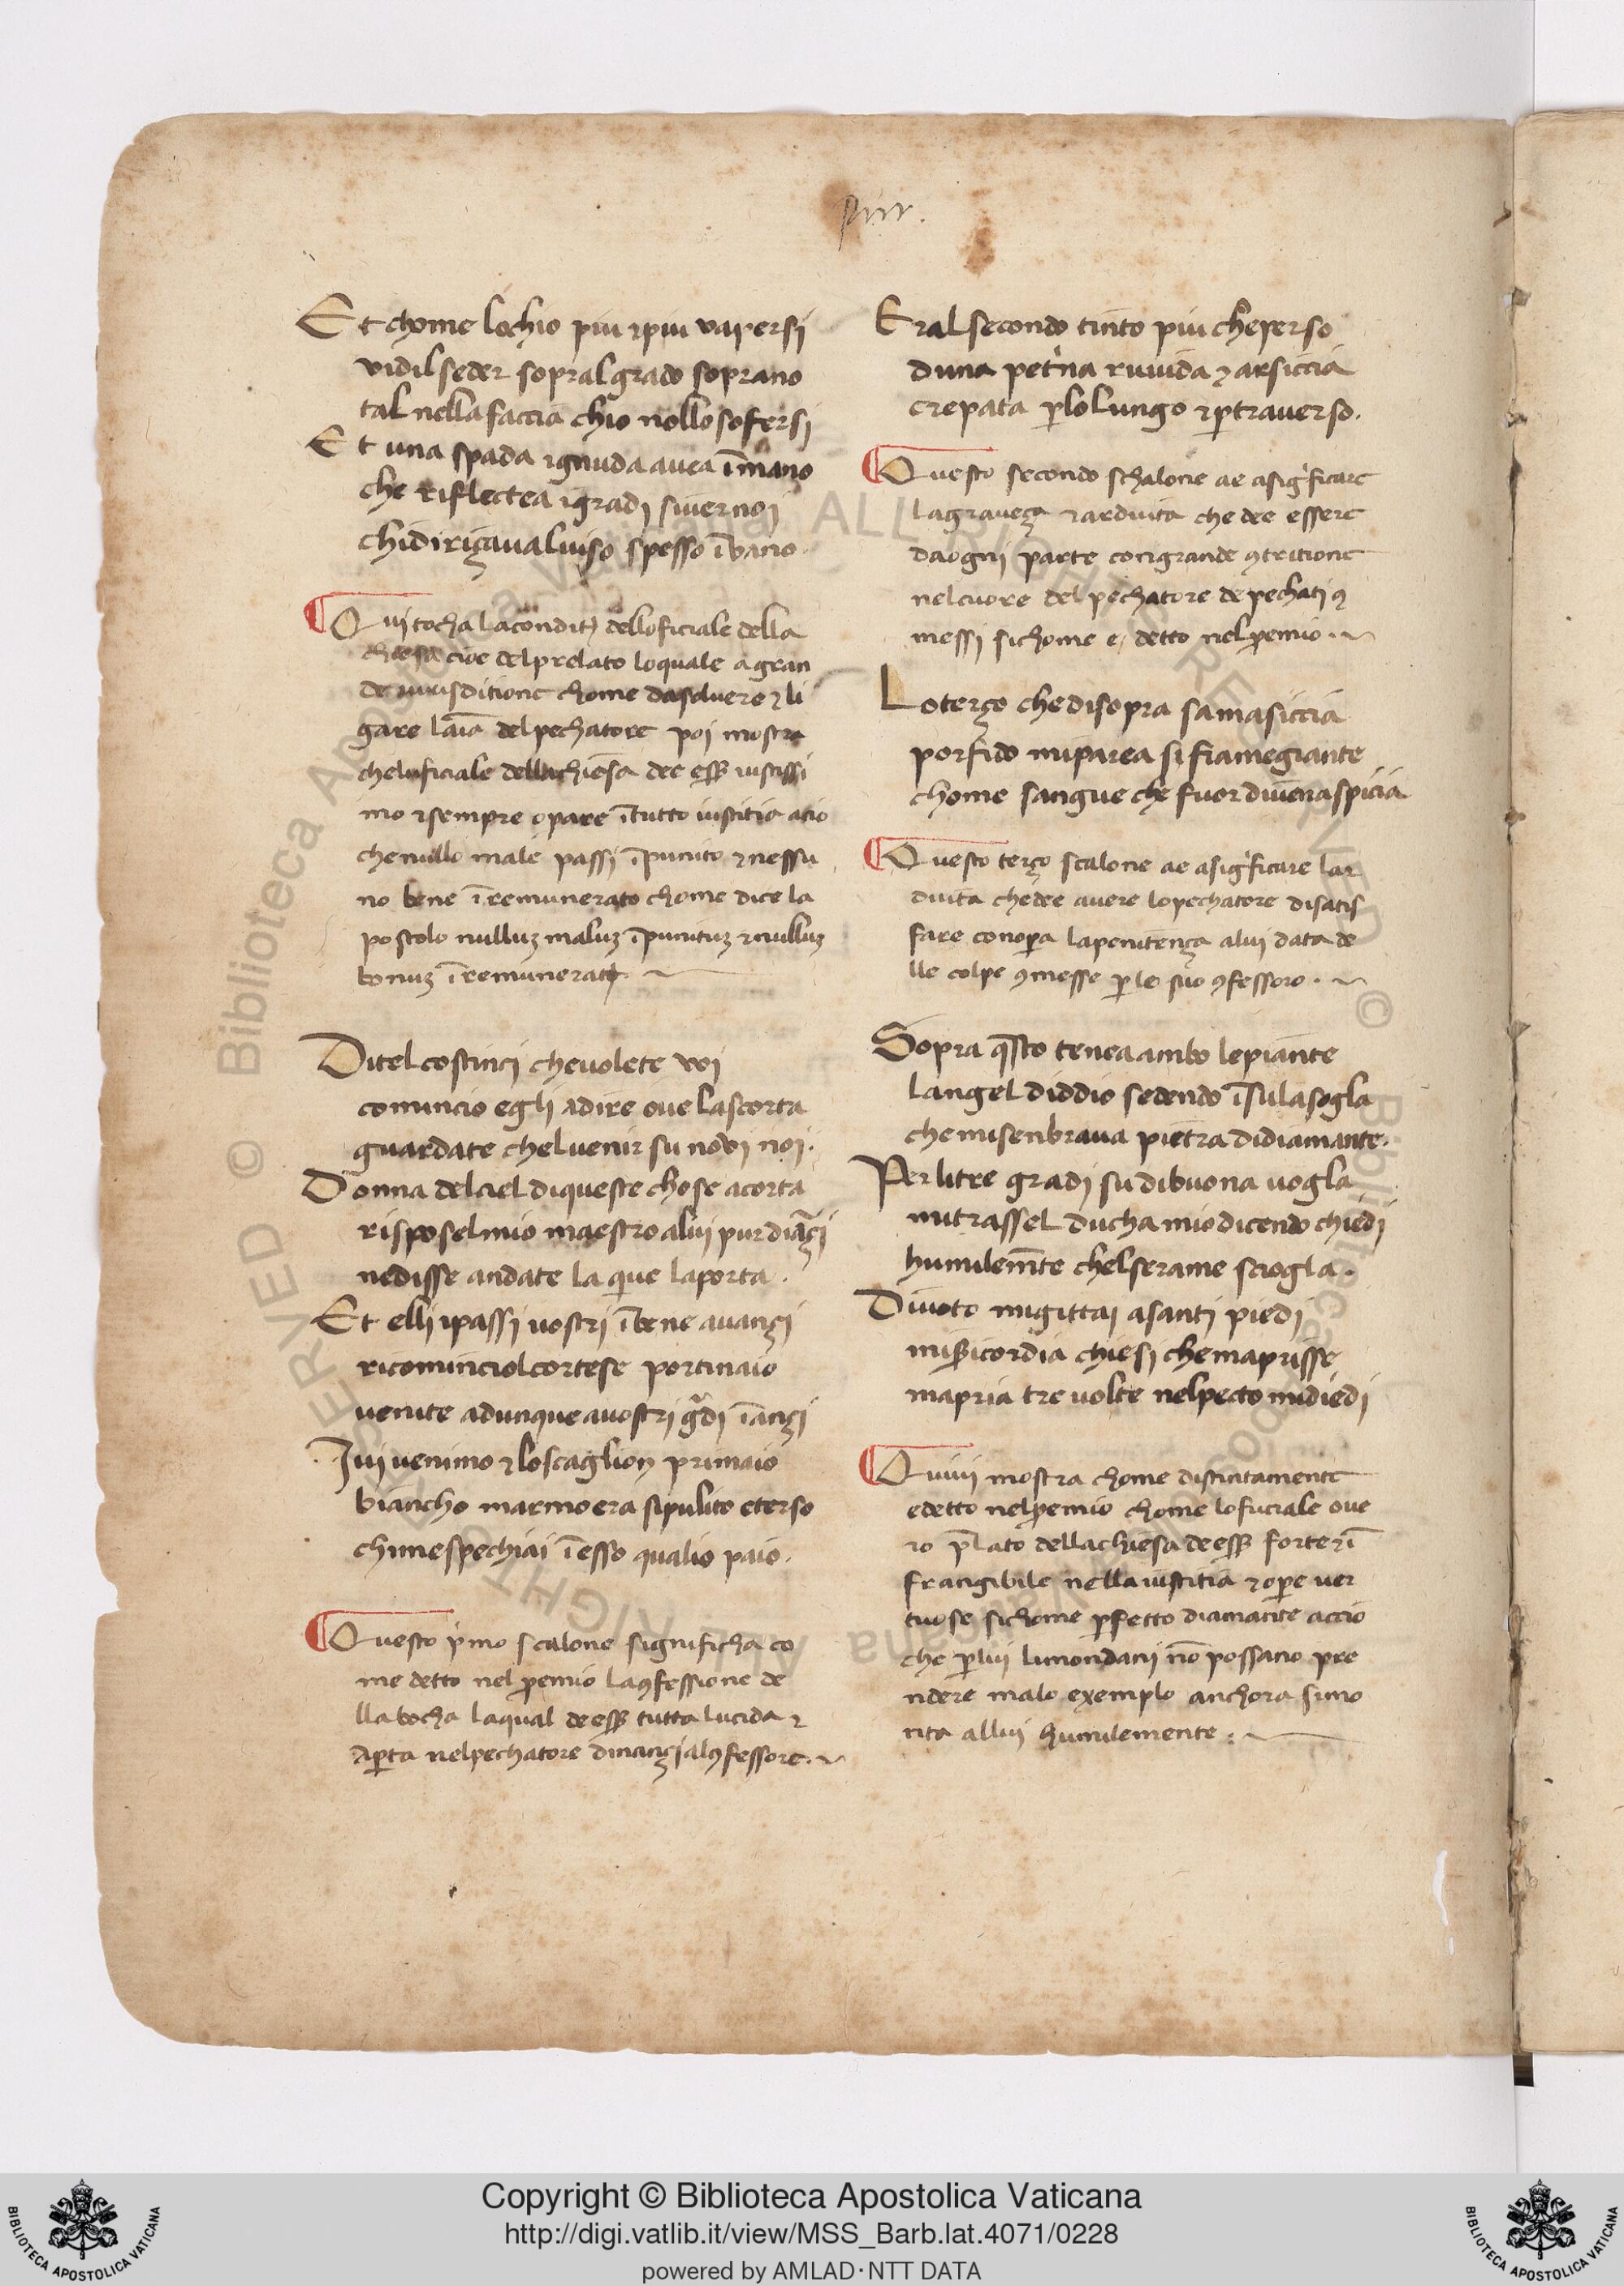 pur.
Et chome lochio piu ⁊piu vapersi
vidilseder sopralgrado soprano
tal nellafaccia chio nollosofersi
Et una spada ignuda avea ī mano
che riflectea igradj siuernoj
chidiriçavaluiso spesso ī vano.
Qui tocha lacondit̄ delloficiale della
chiesa cioe delprelato loquale agran
de iurisditione chome dasoluere ⁊ li
gare lāia delpechatore poj mostra
cheluficiale dellachiesa dee eſſ̄ iustissi
mo ⁊sempre opare ī tutto iustitia acio
chenullo male passi īpunito ⁊nessu
no bene īremunerato chome dice la
postolo nulluꝫ maluꝫ īpunituꝫ ⁊nulluꝫ
bonuꝫ īremunerat
Ditel costincj chevolete voj
comincio eglj adire ove lascorta
guardate chelvenir su novi noj.
Donna delciel diqueste chose acorta
risposelmio maestro aluj pur diāçj
nedisse andate la quie laporta.
Et ellj ipassj vostrj ībene avançj
ricominciolcortese portinaio
venite adunque avostrj gᷓdj īançj
Ivj venimo ⁊ loscaglion primaio
biancho marmoera sipulito eterso
chimespechiai ī esso qualio paio.
Questo p̍mo scalone significha co
me detto nel ꝓemio laꝯfessione de
llabocha laqual deeſſ̄ tutta lucida ⁊
aꝑta nelpechatore dinançialꝯfessore.
Eralsecondo tinto piu cheperso
duna petrina ruuida ⁊ arsiccia
crepata ꝑlolungo ⁊ꝑtraverso.
Questo secondo schalone ae asig̍ficare
lagraveça ⁊arduita che dee essere
daogni parte congrande ꝯtritione
nelcuore del pechatore depechati ꝯ
messi sichome e detto nelꝓemio.
Loterço chedisopra samasiccia
porfido miparea sifiamegiante
chome sangue che fuordivenaspicia
Questo terço scalone ae asig̍ficare lar
duita chedee avere lopechatore disatis
fare conoꝑa lapenitença aluj data de
lle colpe ꝯmesse ꝑ lo suo ꝯfessoro.
Sopra qsto tenea ambo lepiante
langel diddio sedendo īsulasogla
chemisenbrava pietra didiamante.
Perlitre gradj su dibuona vogla
mitrassel ducha mio dicendo chiedj
humilem̄te chelserame sciogla.
Divoto migittaj asantj piedj
misericordia chiesj chemaprisse
mapria tre volte nelpecto midiedj
Quivi mostra chome distintamente
edetto nelꝓemio chome lofuciale ove
ro p̄lato dellachiesa deeſſ̄ forte ⁊ī
frangibile nella iustitia ⁊oꝑe ver
tuose sichome ꝑfetto diamante accio
che ꝑluj limondanj nō possano pre
ndere malo exemplo anchora simo
nta alluj humilemente.
Copyright © Biblioteca Apostolica Vaticana
http://digi.vatlib.it/view/MSS_Barb.lat.4071/0228
powered by AMLAD·NTT DATA
BIBLIOTECA APOSTOLICA VATICANA
BIBLIOTECA APOSTOLICA VATICANA